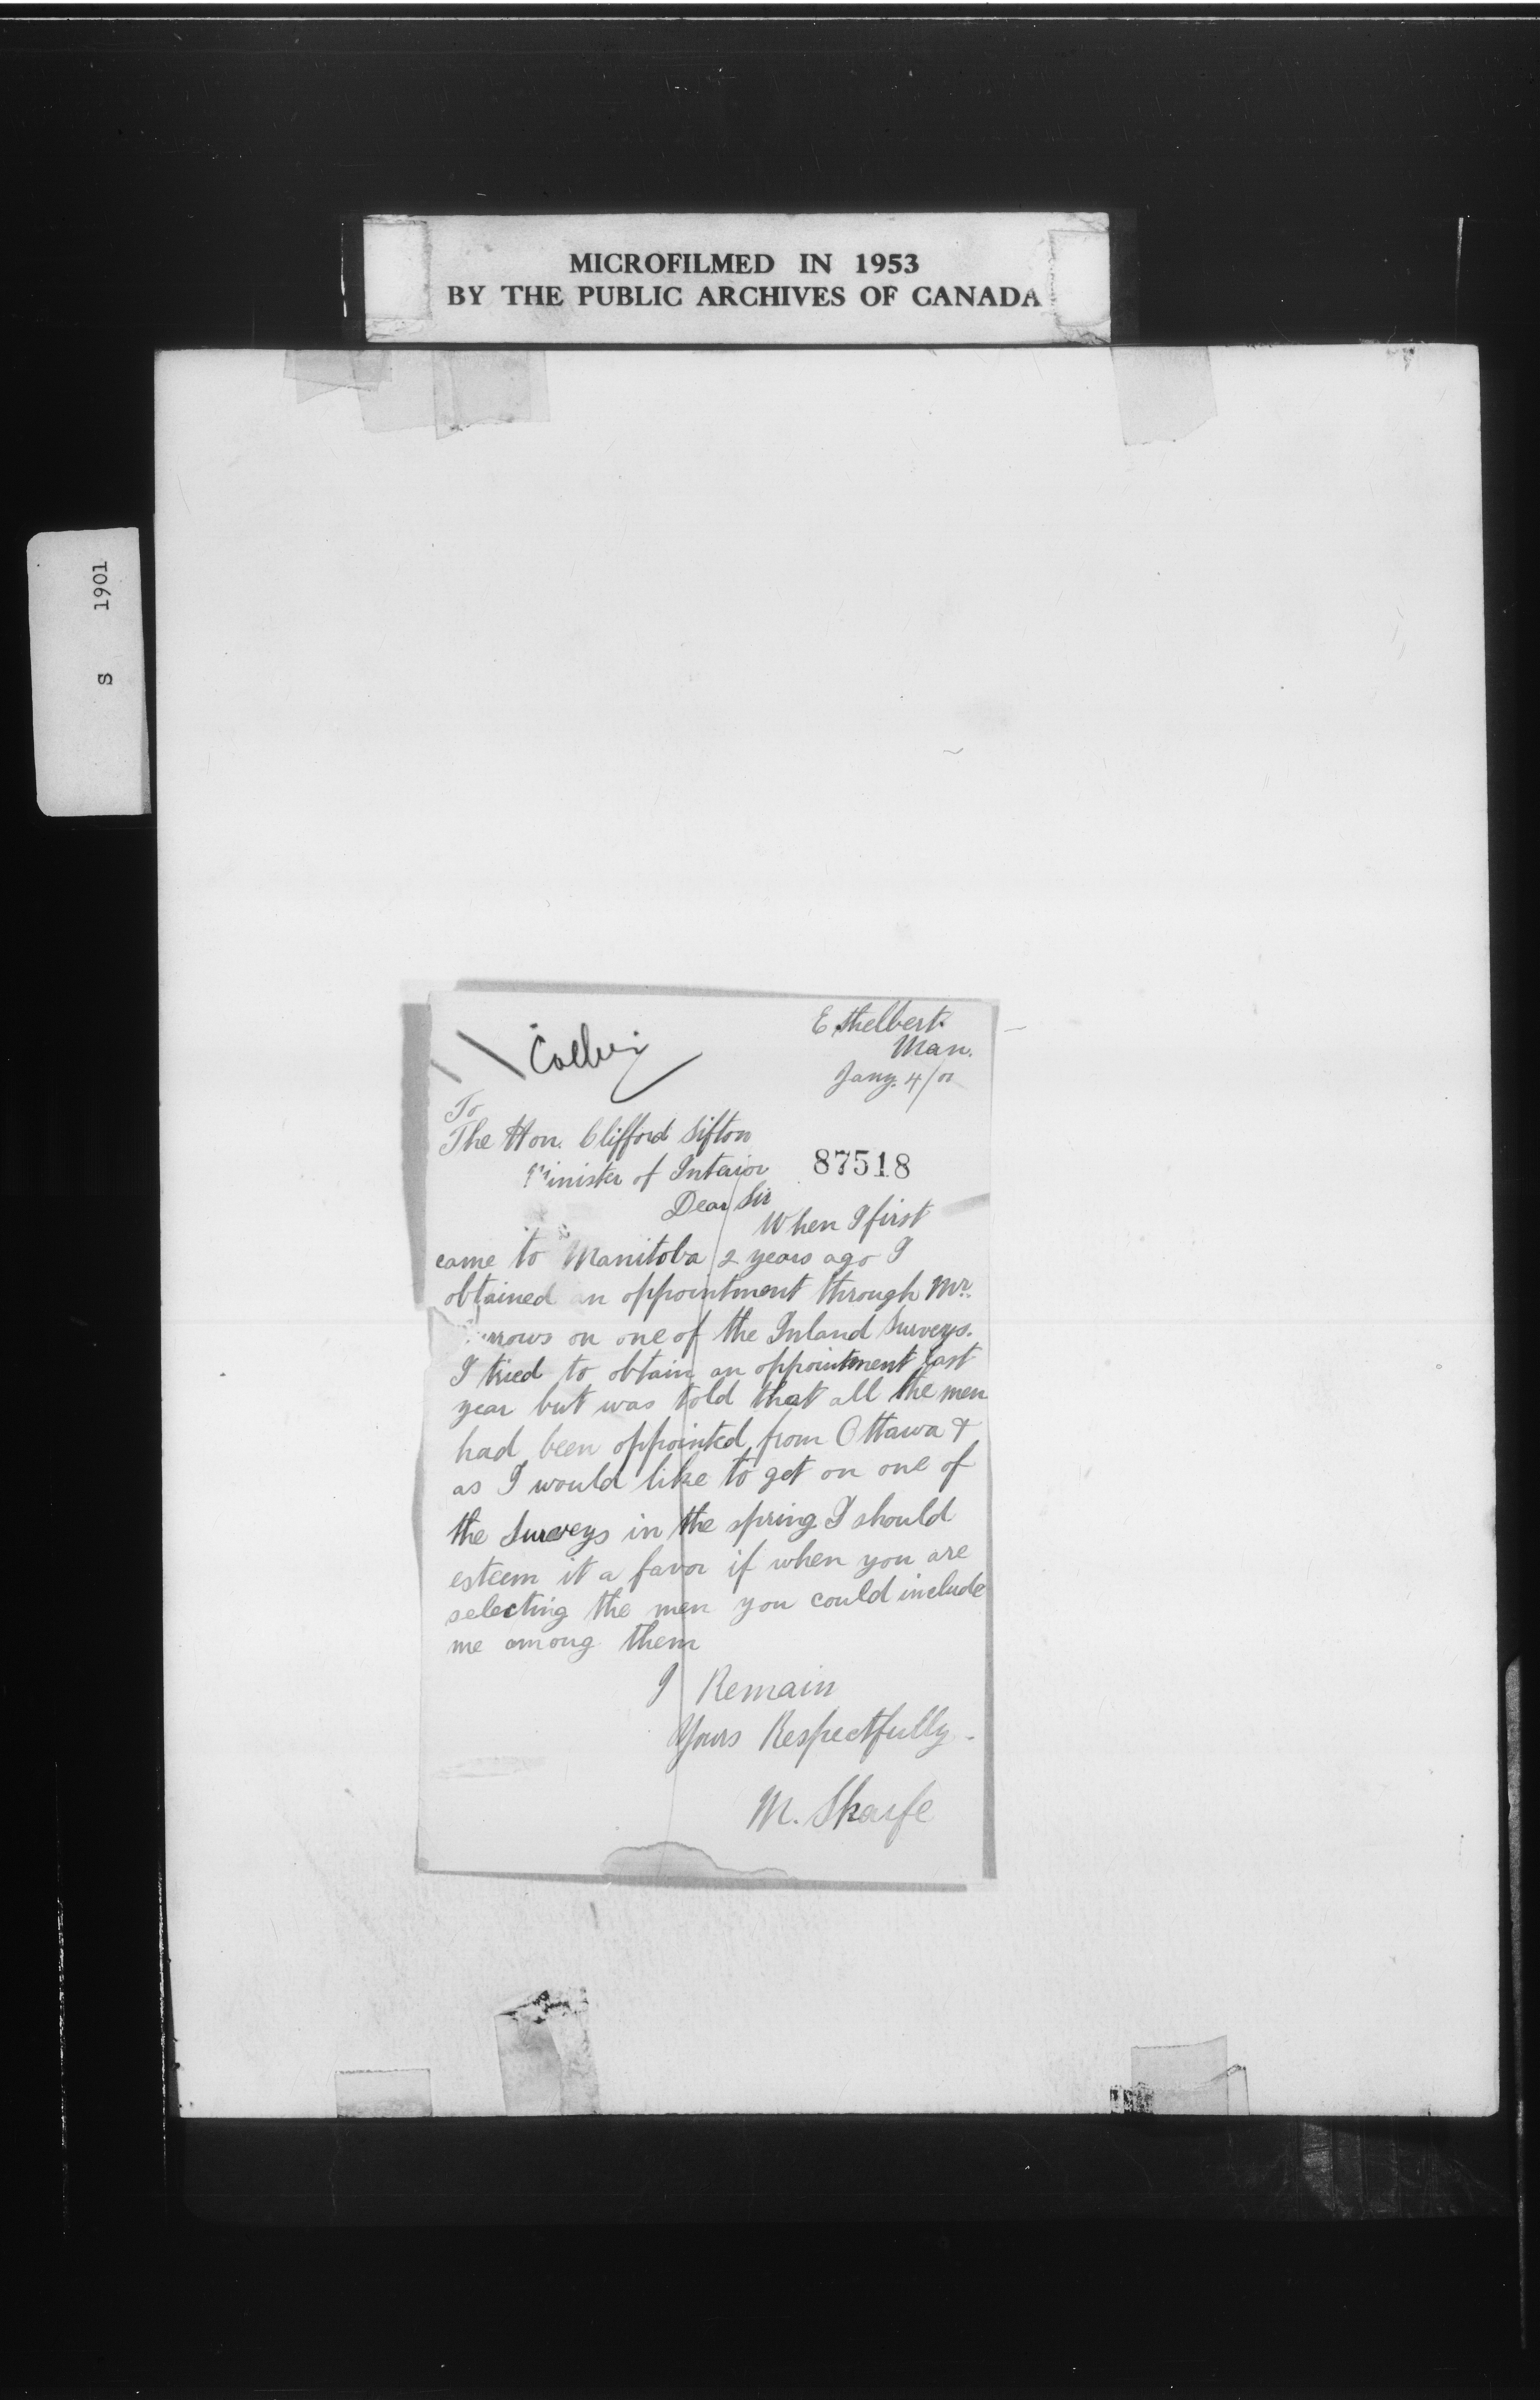 MICROFILMED IN 1953
BY THE PUBLIC ARCHIVES OF CANADA
S 1901
Ethelbert
Man.
Jany. 4/01
To
The Hon. Clifford Sifton
Minister of Interior
87518
Dear Sir
When I first
came to Manitoba 2 years ago I
obtained an appointment through Mr.
rrows on one of the Inland Surveys.
I tried to obtain an appointment last
year but was told that all the men
had been appointed from Ottawa &
as I would like to get on one of
the Surveys in the spring I should
esteem it a favor if when you are
selecting the men you could include
me among them
I Remain
Yours Respectfully
M. Skarfe